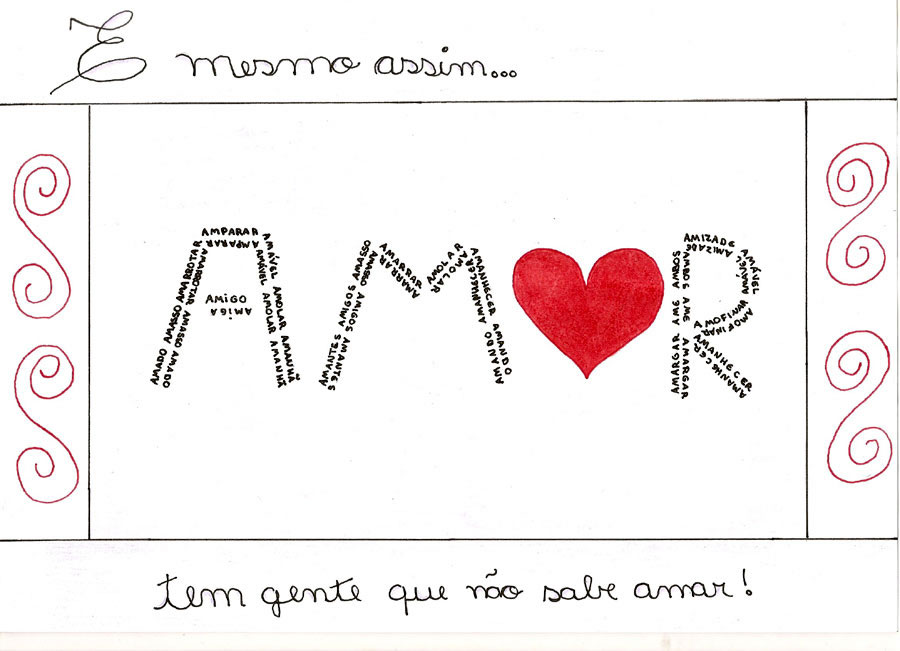 E mesmo assim...
AMADO AMASSO AMARROTAR
AMARROTAR AMASSO AMADO
AMPARAR
AMPARAR
AMÁVEL AMOLAR AMANHÃ
AMÁVEL AMOLAR AMANHÃ
AMIGO
AMIGA
AMANTES AMIGOS AMASSO
AMASSO AMIGOS AMANTES
AMARRAR
AMARRAR
AMOLAR
AMOLAR
AMANHECER AMANDO
AMANHECER AMANDO
AMARGAR AME AMBOS
AMBOS AME AMARGAR
AMIZADE
AMIZADE
AMÁVEL
AMÁVEL
AMOFINAR
AMOFINAR
AMANHECER
AMANHECER
tem gente que não sabe amar!